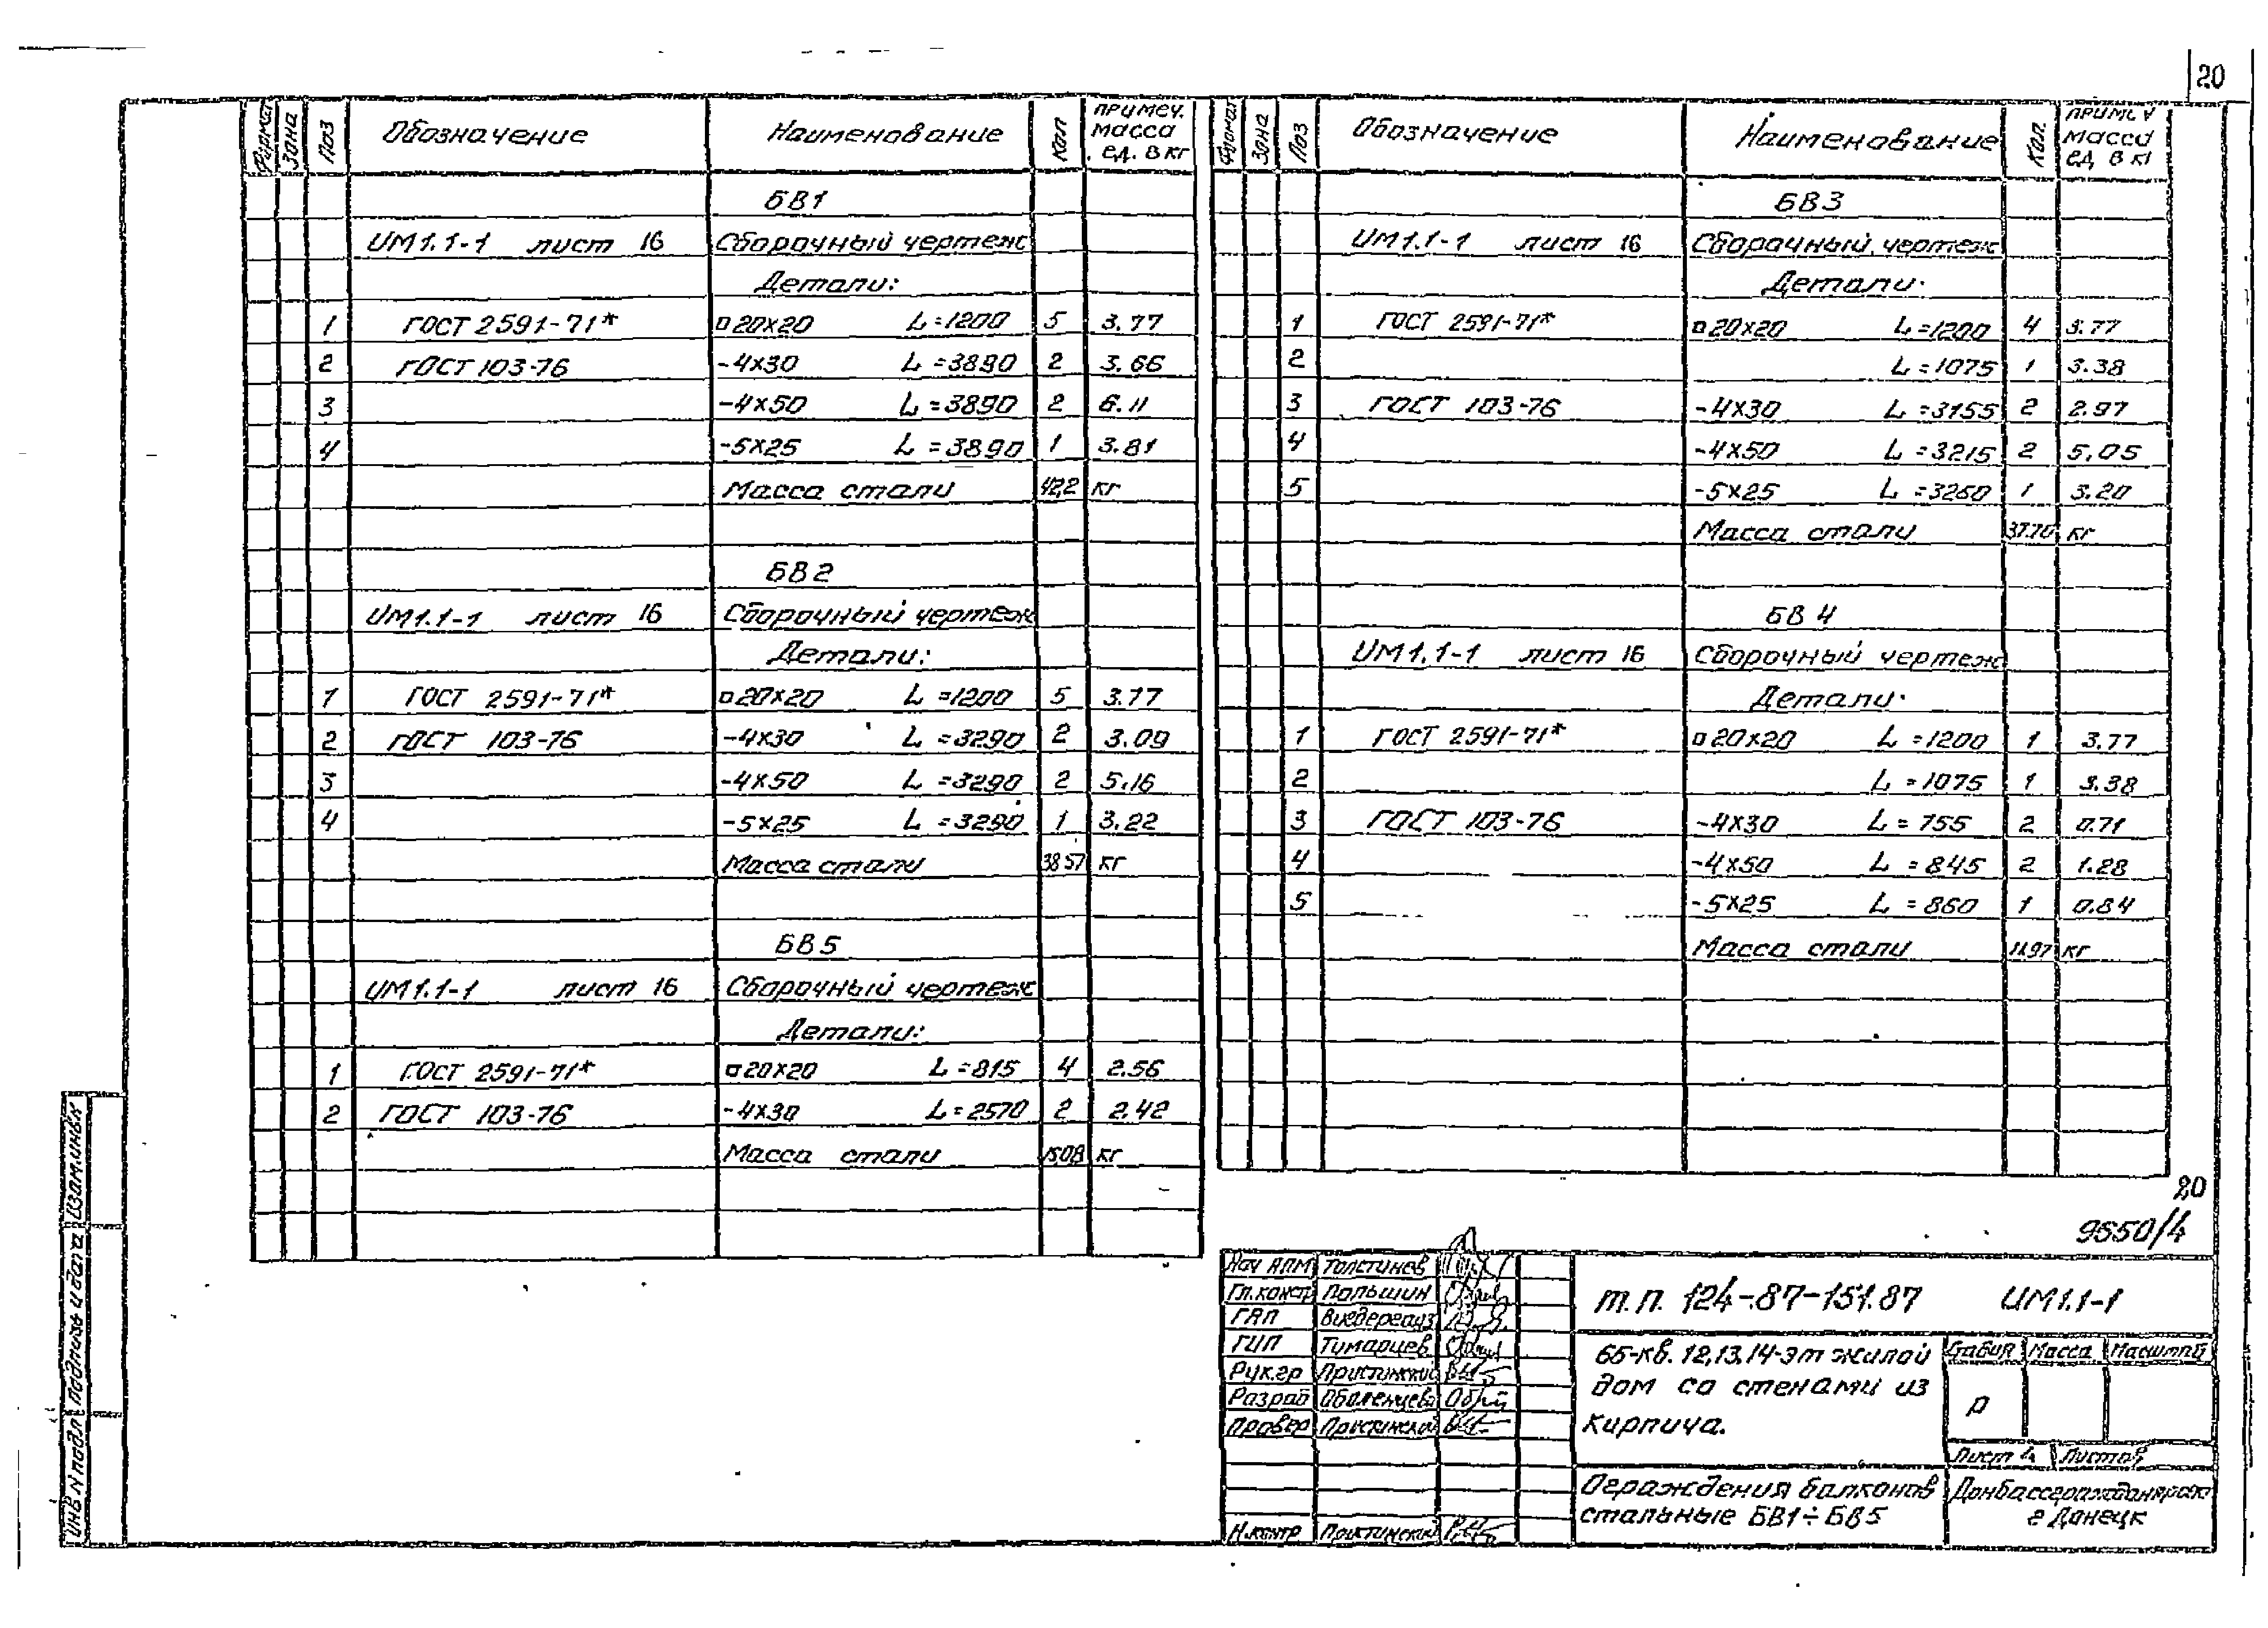 20
Формат Зона Поз Обозначение Наименование Кол примеч. масса ед. в кг
БВ1
ИМ1.1-1 лист 16 Сборочный чертеж
Детали:
1 ГОСТ 2591-71* □20×20 L=1200 5 3.77
2 ГОСТ 103-76 -4×30 L=3890 2 3.66
3 -4×50 L=3890 2 6.11
4 -5×25 L=3890 1 3.81
Масса стали 42,2 кг
БВ2
ИМ1.1-1 лист 16 Сборочный чертеж
Детали:
1 ГОСТ 2591-71* □20×20 L=1200 5 3.77
2 ГОСТ 103-76 -4×30 L=3290 2 3.09
3 -4×50 L=3290 2 5.16
4 -5×25 L=3290 1 3.22
Масса стали 38.57 кг
БВ5
ИМ1.1-1 лист 16 Сборочный чертеж
Детали:
1 ГОСТ 2591-71* □20×20 L=815 4 2.56
2 ГОСТ 103-76 -4×30 L=2570 2 2.42
Масса стали 15.08 кг
Формат Зона Поз Обозначение Наименование Кол. примеч масса ед в кг
БВ3
ИМ1.1-1 лист 16 Сборочный чертеж
Детали:
1 ГОСТ 2591-71* □20×20 L=1200 4 3.77
2 L=1075 1 3.38
3 ГОСТ 103-76 -4×30 L=3155 2 2.97
4 -4×50 L=3215 2 5.05
5 -5×25 L=3260 1 3.20
Масса стали 37.70 кг
БВ4
ИМ1.1-1 лист 16 Сборочный чертеж
Детали:
1 ГОСТ 2591-71* □20×20 L=1200 1 3.77
2 L=1075 1 3.38
3 ГОСТ 103-76 -4×30 L=755 2 0.71
4 -4×50 L=845 2 1.28
5 -5×25 L=860 1 0.84
Масса стали 11.97 кг
20
9550/4
Нач АПМ Толстинев
Гл.констр Палышин
ГАП
ГИП Тумарцев
Рук.гр Пристинский
Разраб Оболенцева
Провер Пристинский
Н.контр Пристинский
т.п. 124-87-151.87 ИМ1.1-1
65-кв. 12,13,14-эт жилой
дом со стенами из
кирпича.
Стадия Масса Масштаб
Р
Лист 4 Листов
Ограждения балконов
стальные БВ1÷БВ5
Донбассгражданпроект
г Донецк
ИНВ N подл Подпись и дата Взам.инв.N